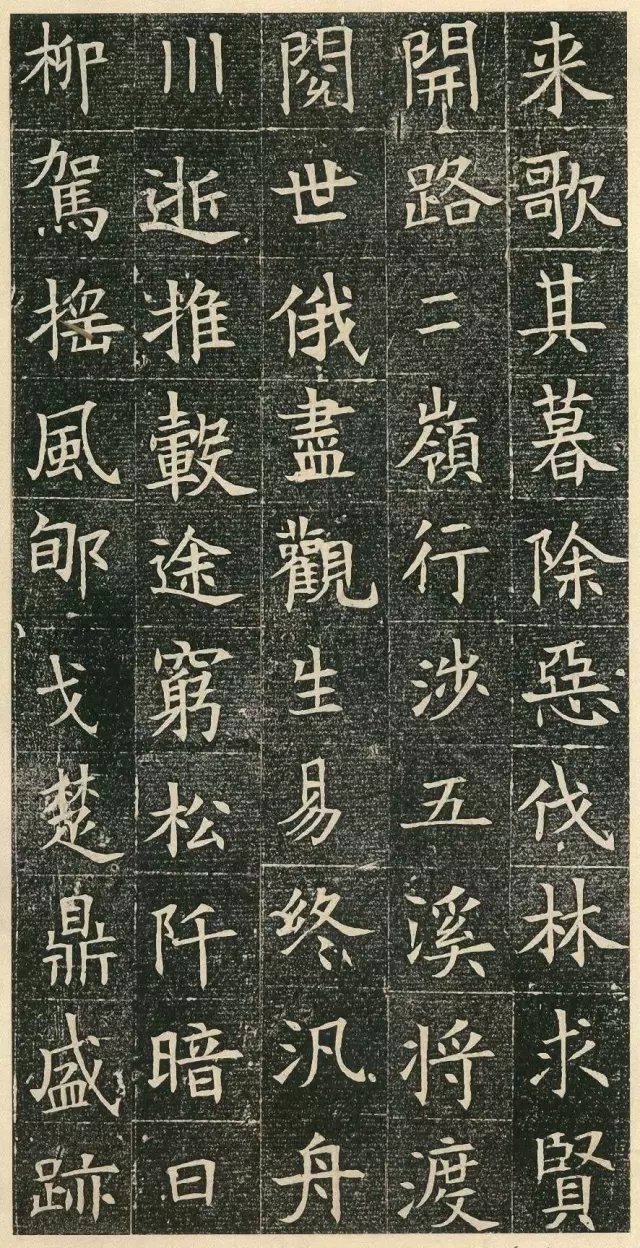 来歌其暮除惡伐林求賢
開路二嶺行涉五溪将渡
閱世俄盡觀生易終汎舟
川逝推轂途窮松阡暗日
柳駕摇風郇戈楚鼎盛跡